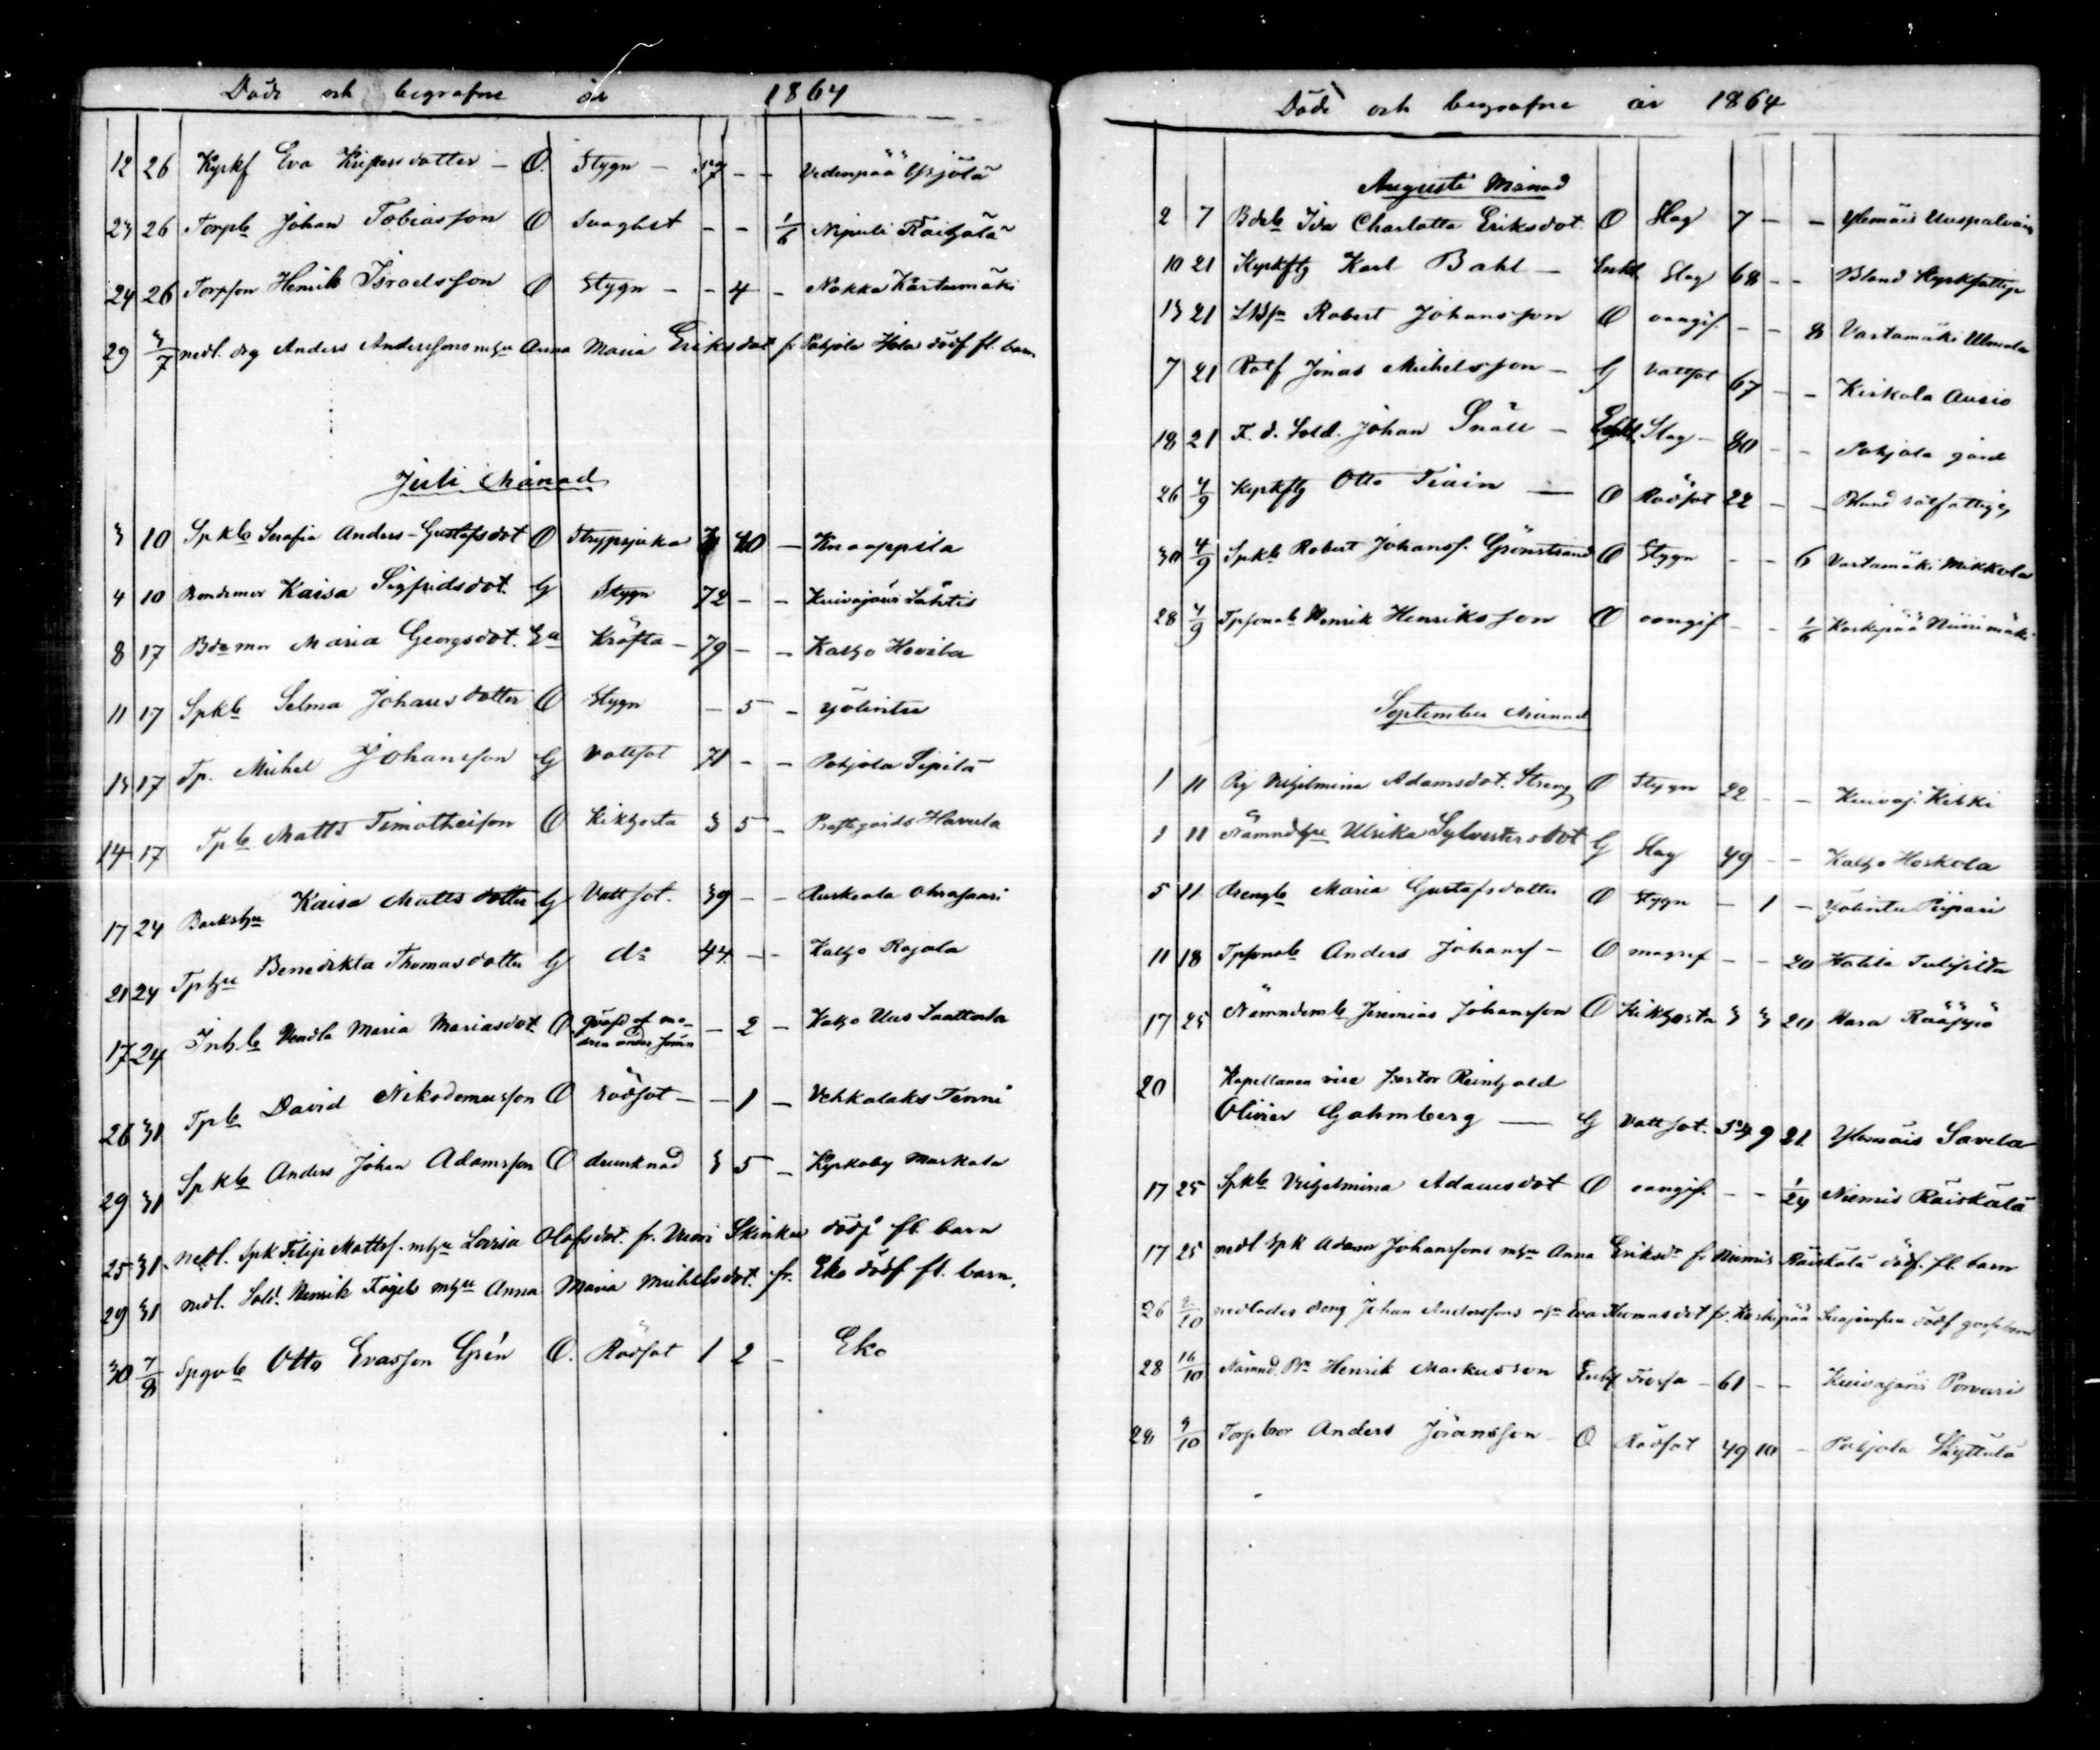 Döde och begrafne år 1864
12 26 Kyrkf Eva Krisersdotter - O. Stygn - 57 - - Vedenpää Yrjölä
23 26 Torpb Johan Tobiasson O Svaghet - - 1/6 Nipuli Raitala
24 26 Torpson Henrik Israelsson O Stygn - - 4 - Nokka Kartumäki
29 3/7 nedl. drg Anders Anderssons mhu Anna Maria Eriksdot fr Pohjola Hjola dödf. fl. barn
Juli Månad
3 10 Spkb Serafia Anders-Gustafsdot O Strypsjuka 10 - Knaappila
4 10 Bondemor Kaisa Sigfridsdot. G Stygn 72 - - Kuivajärvi Lahtis
8 17 Bdemor Maria Georgsdot. Ea Kräfta - 79 - - Kaltzo Hovila
11 17 Spkb Selma Johansdotter O Stygn - 5 - Yölintu
13 17 Tp. Michel Johansson G Vattsot 71 - - Pohjola Sipilä
14 17 Tpb Matts Timotheison O Kikhosta 3 5 - Prestgårds Harula
17 24 Backshu Kaisa Mattsdotter G Vattsot. 39 - - Auskoala Ohrasaari
21 24 Tphu Benedikta Thomasdotter G do 44. - - Kaltzo Rajala
17 24 Inhb Vendla Maria Mariasdot O qväfd af mo-
dren under sömn - 2 - Kaltzo Uus Laattala
26 31 Tpb David Nikodemusson O Rödsot - - 1 - Vehkalaks Tenni
29 31 Spkb Anders Johan Adamsson O drunknad 3 5 - Kyrkoby Markala
25 31 nedl. Spk Filip Mattss. mhu Lovisa Olofsdot. fr. Vuori Skinkar dödf fl. barn
29 31 nedl. Sold. Henrik Fogels mhu Anna Maria Michelsdot. fr. Eko dödf fl. barn.
30 7/8 Spgvb Otto Evasson Grén O. Rödsot 1 2 - Eko
Döde och begrafne år 1864
Augusti Månad
2 7 Bdeb Ida Charlotta Eriksdot. O Slag 7 - - Ylemäis Uuspalvais
10 21 Kyrkftg Karl Bahl - Enkl Slag 68 - - Bland Kyrkfattiga
13 21 Robert Johansson O oangif. - - 8 Vastamäki Ulmala
7 21 Rotf Jonas Michelsson - G Vattsot 67 - - Kiskola Ausio
18 21 F. d. Sold. Johan Snäll - Enkl Slag - 80 - - Pohjola gård
26 4/9 Kyrkftg Otto Tiain - O Rödsot 22 - - Bland rotfattiga
30 4/9 Spkb Robert Johanss. Grönstrand O Stygn - - 6 Vastamäki Mikkola
28 4/9 Tpsonsb Henrik Henriksson O oangif - - 1/6 Koskipää Niinimäki
September Månad
1 11 Pig Vilhelmina Adamsdot. Streng O Stygn 22 - - Kuivaj. Kikki
1 11 Nämndhu Ulrika Sylvestersdot G Slag 49 - - Kaltzo Hoskola
5 11 drengb Maria Gustafsdotter O Stygn - 1 - Yölintu Piipari
11 18 Tpsonsb Anders Johanss - O magref - - 20 Hatila
17 25 Nämndemb Jeremias Johansson O Kikhosta 3 3 20 Vara Rääpyö
20 Kapellanen vice Pastor Reinhold
Olivier Gahmberg - G Vattsot. 54 9 21 Ylemäis Savela
17 25 Spkb Vilhelmina Adamsdot O oangif. - - 1/24 Niemis Räiskälä
17 25 nedl Spk Adam Johanssons mhu Anna Eriksdr fr Niemis Räiskälä dödf. fl. barn
26 2/10 nedlades dreng Johan Anderssons mhu Eva Thomasdot fr. Koskipää dödf gossebarn
28 16/10 Nämnd. Bn Henrik Markusson Enkl Frossa - 61 - - Kuivajäris Porvari
29 9/10 Torpbror Anders Jöransson - O Rödsot 49 10 - Pohjola Skyttälä